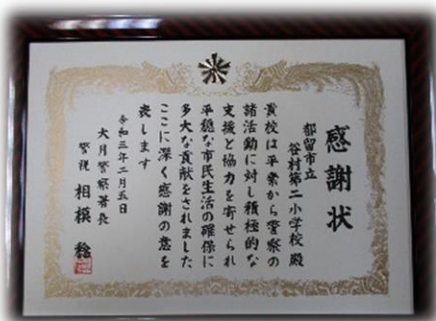 感謝状
都留市立
谷村第二小学校 殿
貴校は平素から警察の
諸活動に対し積極的な
支援と協力を寄せられ
平穏な市民生活の確保に
多大な貢献をされました
ここに深く感謝の意を
表します
令和三年二月五日
大月警察署長
警視 相模 稔